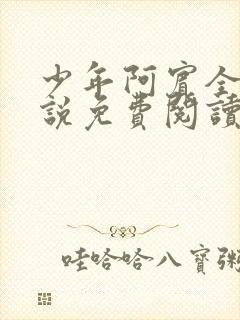 少年阿賓全
說免費閱讀
哇哈哈八寶粥